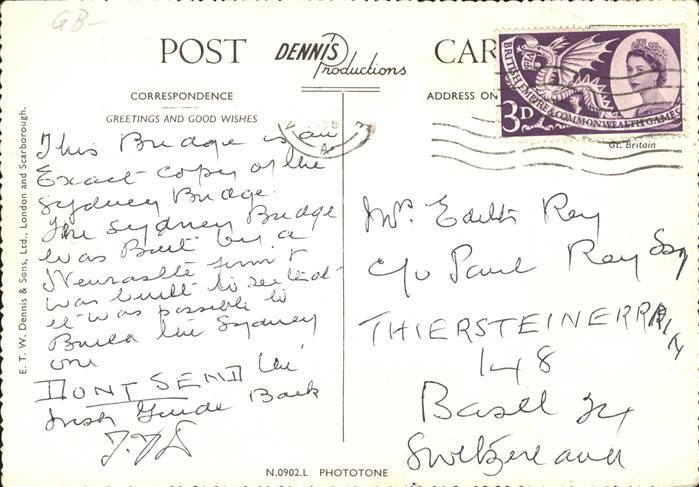 GB-
POST
DENNIS
Productions
CAR
CORRESPONDENCE
ADDRESS ON
GREETINGS AND GOOD WISHES
BRITISH EMPIRE & COMMONWEALTH GAMES
3D
Gt. Britain
E. T. W. Dennis & Sons, Ltd., London and Scarborough.
This Bridge is an
Exact copy of the
Sydney Bridge.
The Sydney Bridge
was Built by a
Newcastle firm &
was built to see that
it was possible to
Build the Sydney
one
DONT SEND the
Irish Guide Back
Mr. Edith Rey
c/o Paul Rey Esq
THIERSTEINERRAIN
148
Basel 24
Switzerland
N.0902.L PHOTOTONE